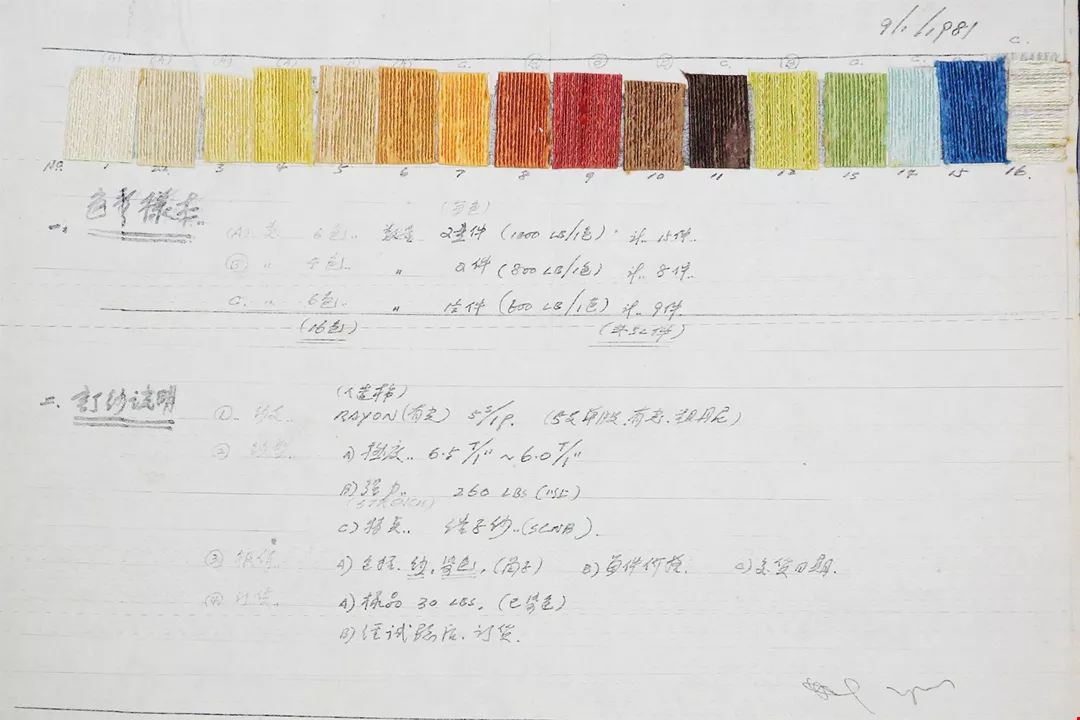 9/1/1981
C.
(A) (A) (A) (A) (A) (A) C. C. C. (B) C. C. C.
NO. 1 2 3 4 5 6 7 8 9 10 11 12 13 14 15 16.
一、 色彩樣本
(每色)
(A) 类 6色.. 数量 件 (1000 LB/1色) 计.. 15件..
(B) 〃 4色.. 〃 2件 (800 LB/1色) 计.. 8件..
C. 〃 6色.. 〃 件 (600 LB/1色) 计.. 9件
(16色) (共32件)
二. 訂纱说明
(人造棉)
①. RAYON(有光) 5'S/1P. (5支单股.有光.粗丹尼)
② A) 捻度.. 6.5 T/1" ~ 6.0 T/1"
B) 强力.. 260 LBS
C) 特点.. 纱..
③ 报价 A) 包括.纱.染色.(筒子) B) 每件价格. C) 交货日期.
④ 订货. A) 样品 30 LBS. (已染色)
B) 经试验后.订货.